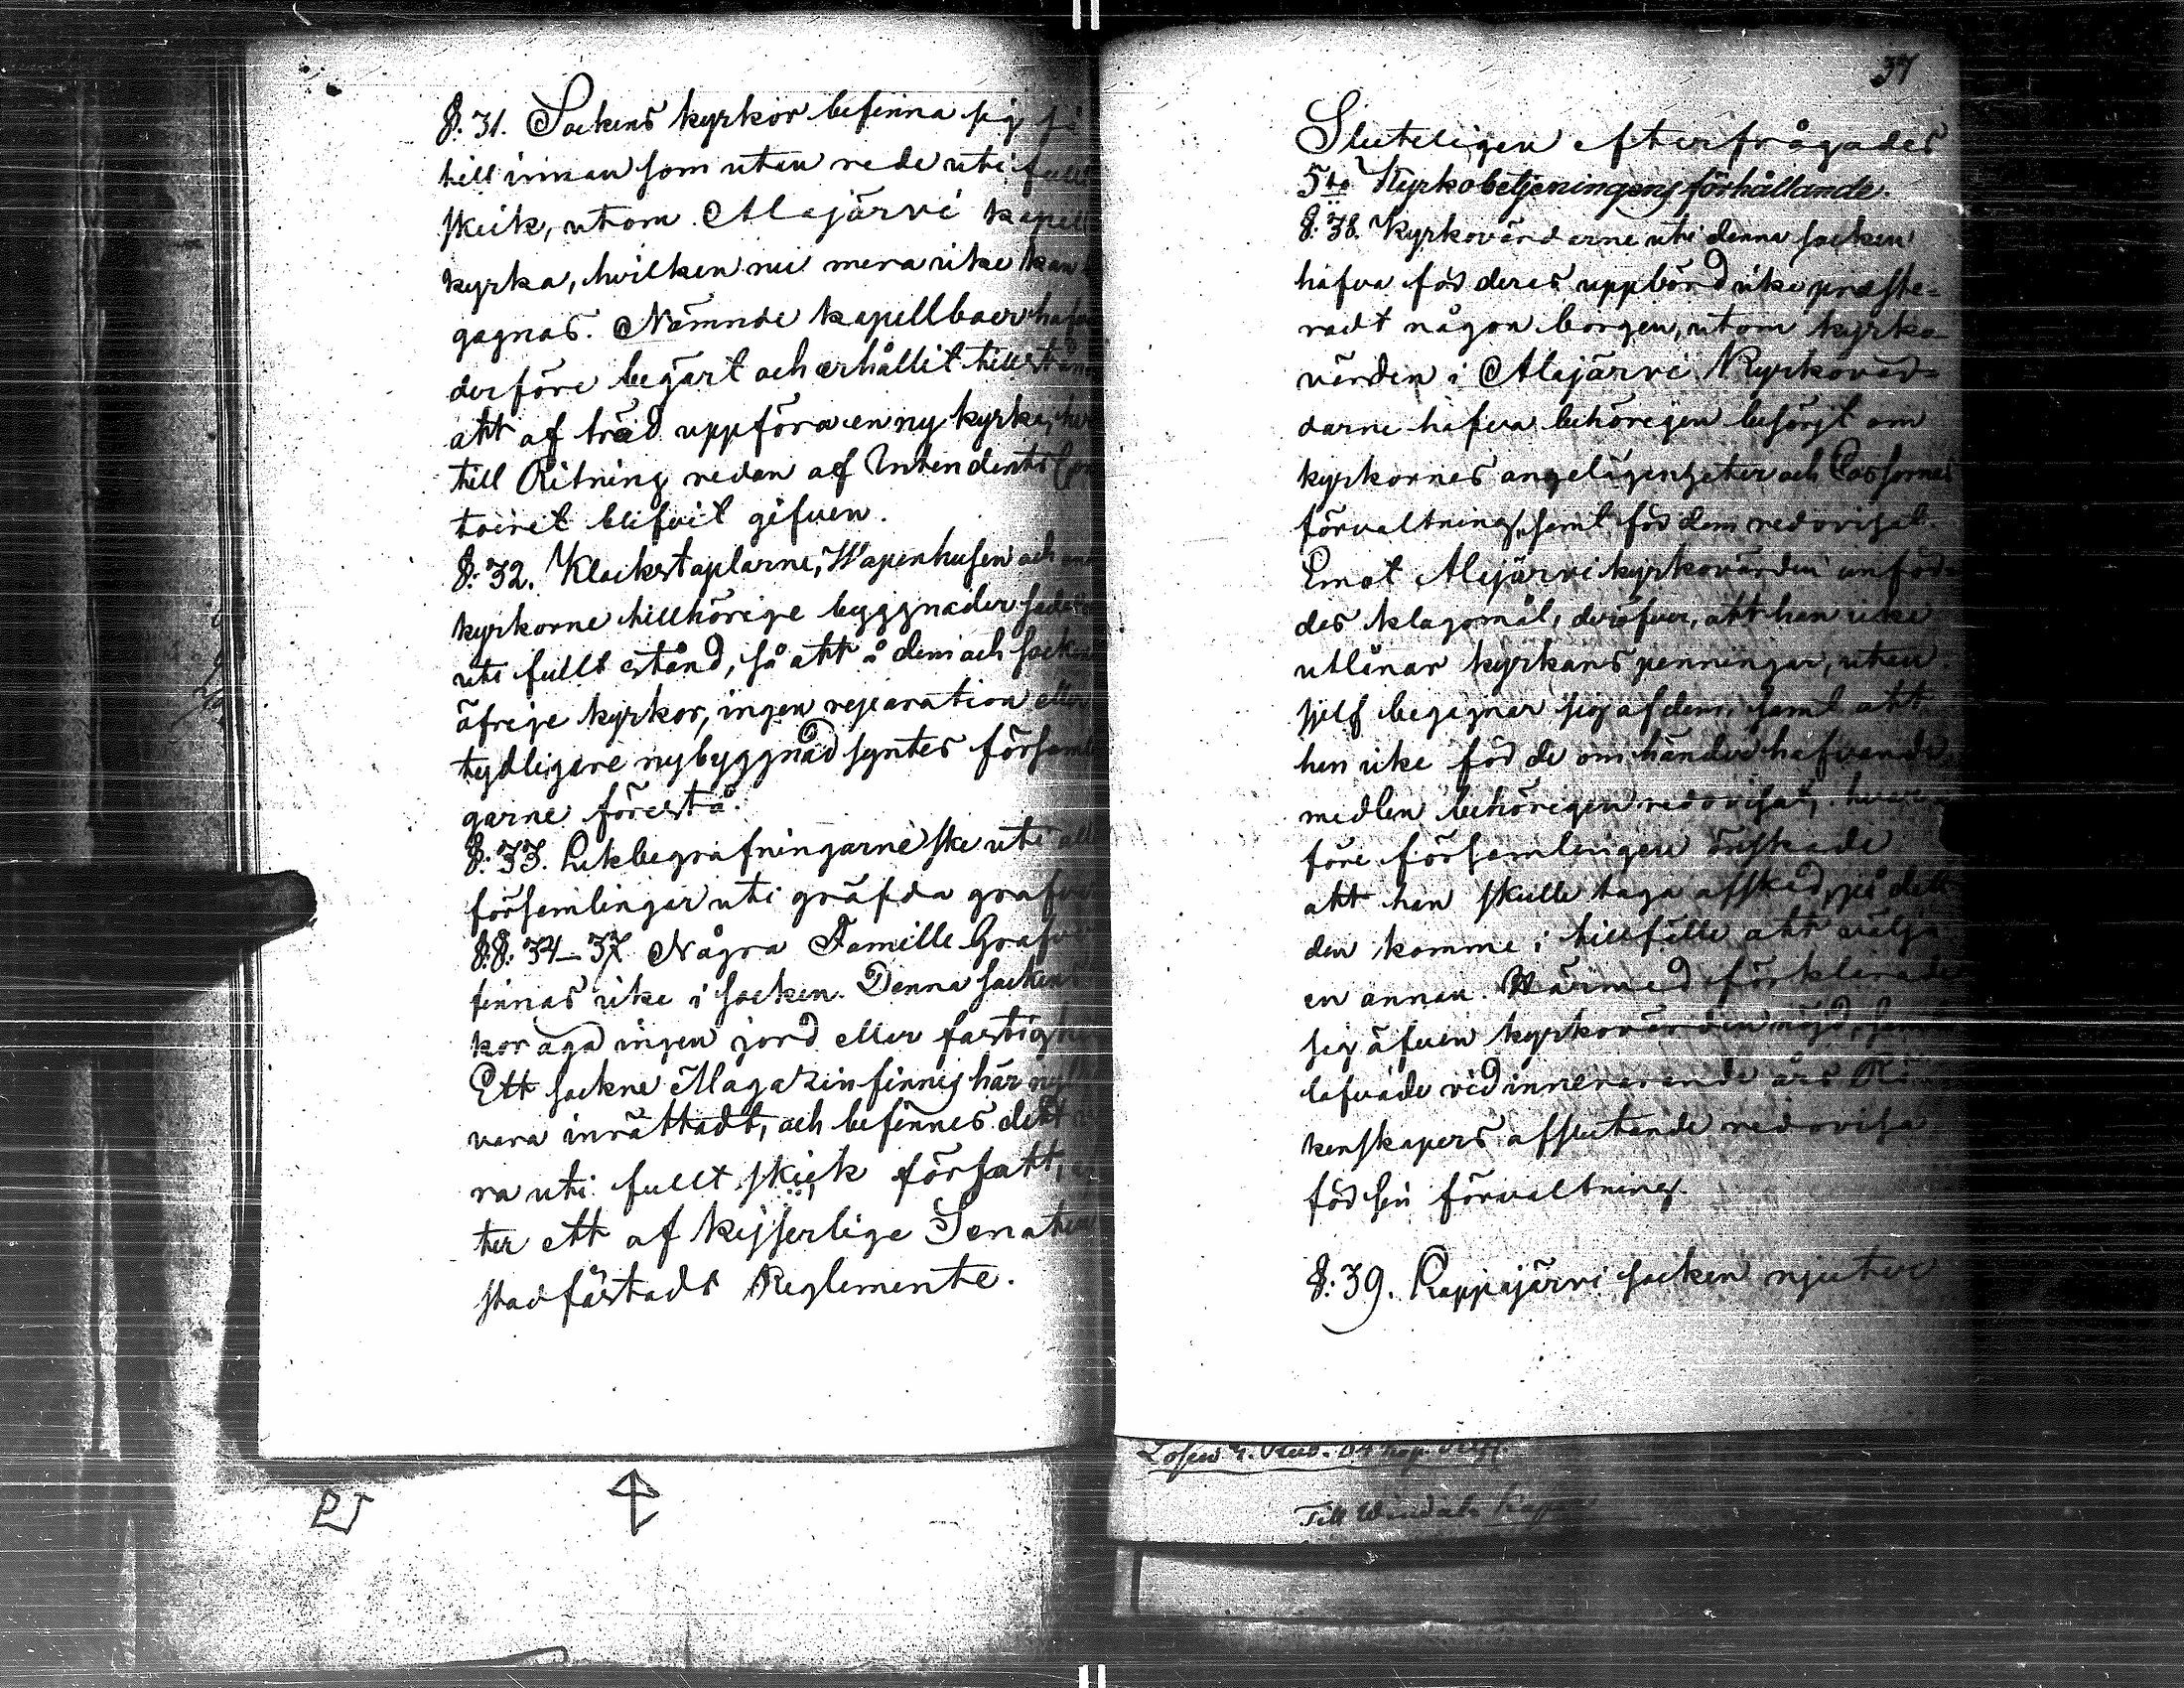 §. 31. Sockens kyrkor befinna sig så
till innan som utan rede uti fullt
skick, utom Alajärvi kapell
kyrka, hvilken nu mera icke kan
gagnas. Nämnde kapellboer hafva
derföre begärt och erhållit tillstånd
att af träd uppföra en ny kyrka,
till Ritning redan af Intendents Con
toiret blifvit gifven.
§. 32. Klockstaplarne, Wapenhusen och
kyrkorne tillhörige byggnader
uti fullt stånd, så att å dem och
äfrige kyrkor, ingen reparation eller
tydligare nybyggnad syntes församl
garne förestå.
§. 33. Likbegrafningarne ske uti alla
församlingar uti gräfda grafvar
§.§. 34–37 Några Famille Grafvar
finnas icke i socken. Denna sockens
kor äga ingen jord eller fastighet
Ett sockne Magazin finnes här
vara inrättadt, och befinnes dett
ra uti fullt skick försatt,
ter ett af Kejserlige Senaten
stadfästadt Reglemente.
37
Sluteligen efterfrågades
5te Kyrkobetjeningens förhållande.
§. 38. Kyrkovärdarne uti denna socken
hafva för deras uppbörd icke præste=
radt någon borgen, utom kyrko=
värden i Alajärvi. Kyrkovär=
darne hafva behörigen besörjt om
kyrkornes angelägenheter och Cassornas
förvaltning, samt för dem redovisat
Emot Alajärvi kyrkovärden anför=
des klagomål, deröfver, att han icke
utlånar kyrkans penningar, utan
sjelf begagnar sig af dem, samt att
han icke för de om händer hafvande
medlen behörigen redovisat,
före församlingen önskade
att han skulle taga afsked, på dett
den komme i tillfälle att välja
en annan. Härmed förklarade
sig äfven kyrkovärden nöjd,
lofvade vid innevarande års Rä
kenskapers afslutande redovisa
för sin förvaltning.
§. 39. Lappajärvi socken njuter
Lösen
Till Windala